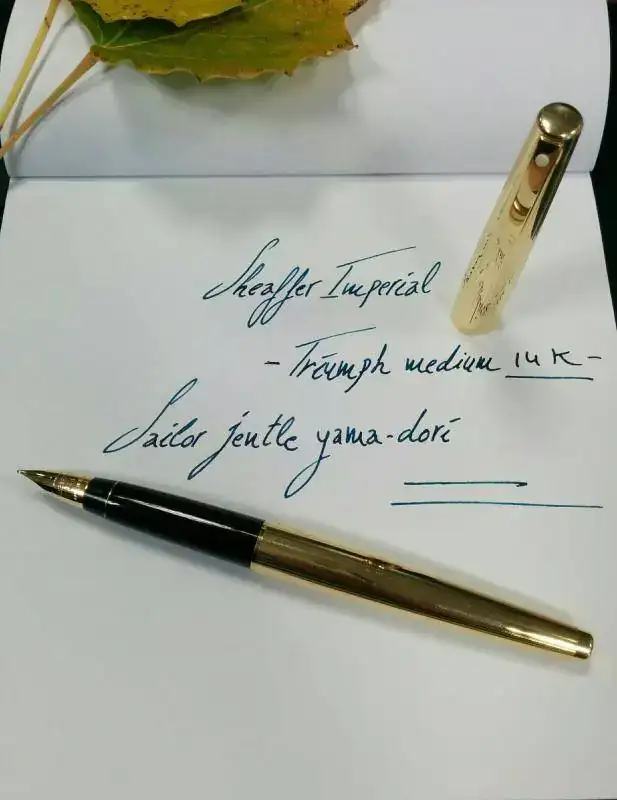 Sheaffer Imperial
- Triumph medium 14K -
Sailor jentle yama-dori